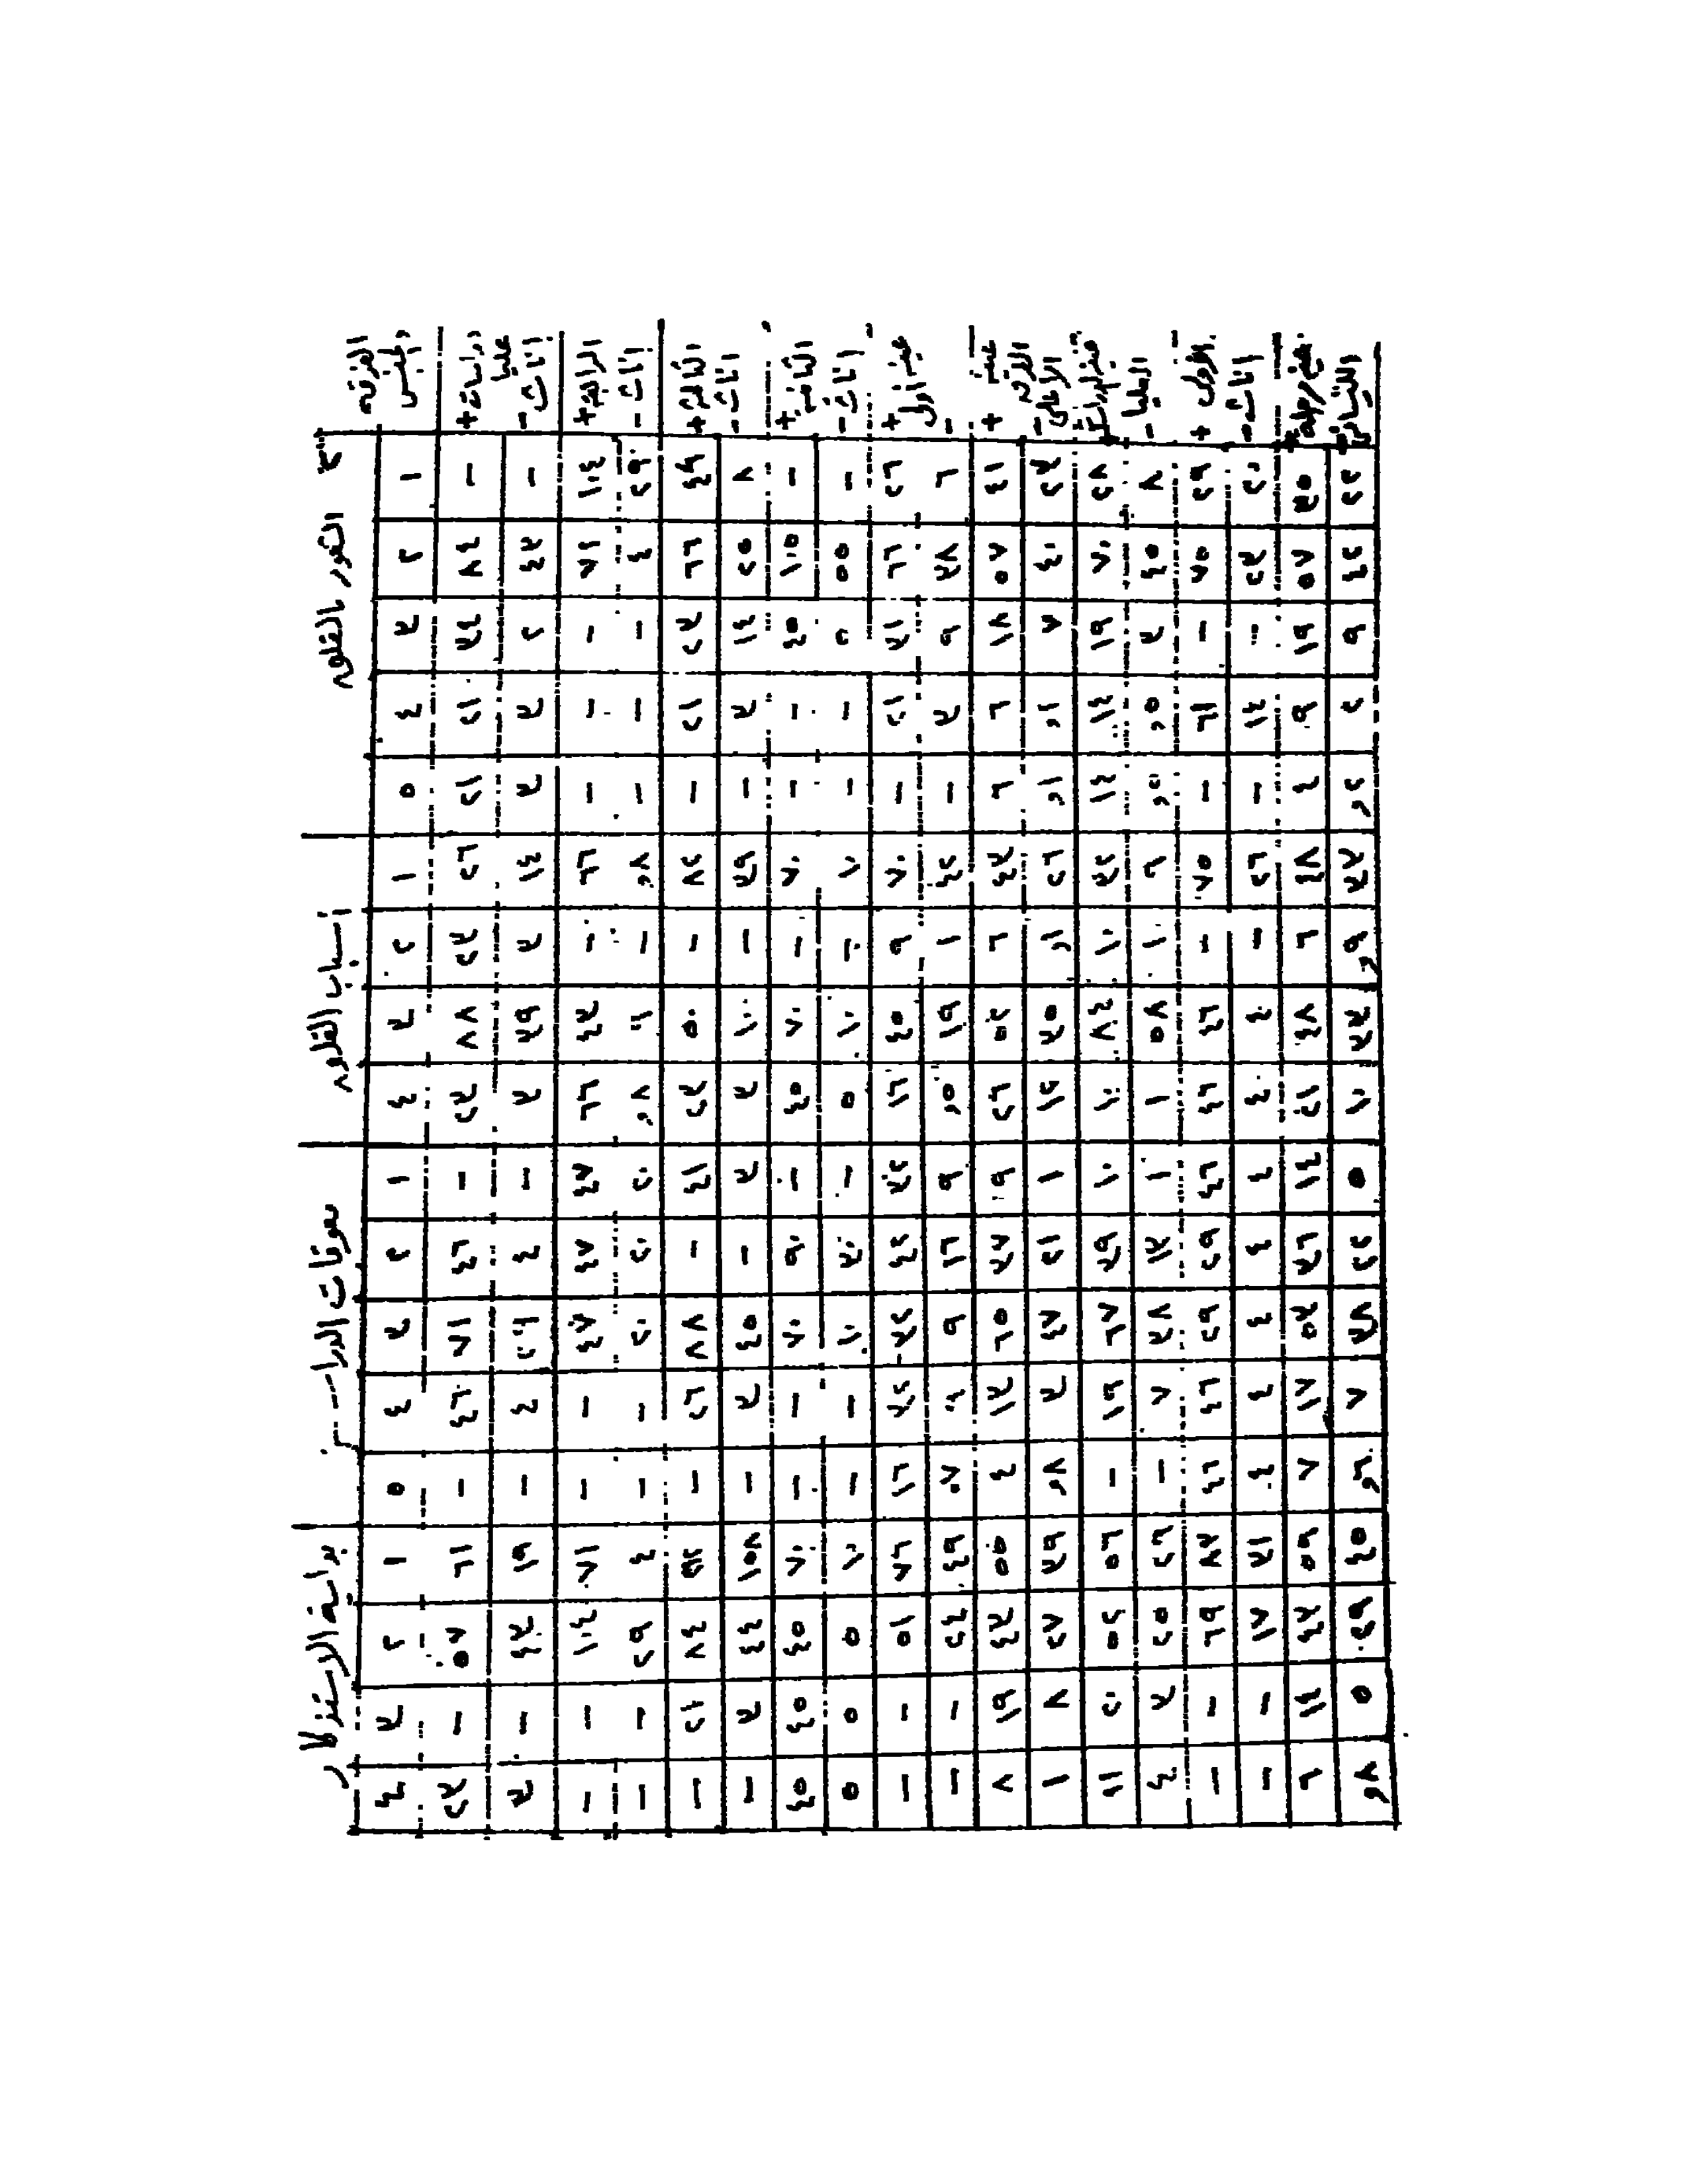 الشعور بالقلق أسباب القلق معوقات الدراسة بداية الاستذكار
الفرقة والجنس ١ ٢ ٣ ٤ ٥ ١ ٢ ٣ ٤ ١ ٢ ٣ ٤ ٥ ١ ٢ ٣ ٤
دراسات عليا + - ٨٤ ٣٤ ٢١ ٢١ ٢٦ ٢٣ ٨٨ ٢٣ - ٤٦ ٧١ ٤٦ - ٦١ ٥٧ - ٢٣
اناث - - ٤٣ ٢ ٣ ٣ ١٤ ٣ ٣٩ ٣ - ٤ ٤ - ١٩ ٤٣ - ٣
الرابعة + ١٠٤ ٧١ - - - ٦٦ - ٤٣ ٦٦ ٤٧ ٤٧ ٤٧ - - ٧١ ١٠٤ - -
اناث - ٢٩ ٤ - - - ٨, - ٦ ٨, ٢٠ ٢٠ ٢٠ - - ٤ ٢٩ - -
الثالثة + ٤٩ ٦٦ ٢٣ ٢١ - ٨٢ - ٥٠ ٢٣ ٤١ - ٨٨ ٢٦ - ٩٢ ٨٤ ٢١ -
اناث - ٨ ٢٥ ١٤ ٣ - ٣٩ - ١٠ ٣ ٣ - ٤٥ ٣ - ١٥٨ ٤٤ ٣ -
الثانية + - ١٠٥ ٤٥ - - ٧٠ - ٧٠ ٤٥ - ٩٠ ٧٠ - - ٧٠ ٤٥ ٤٥ ٤٥
اناث - - ٥٥ ٥ - - ١٠ - ١٠ ٥ - ٣٠ ١٠ - - ١٠ ٥ ٥ ٥
عينة أولى + ٢٦ ٦٦ ٣١ ٢١ - ٧٠ ٩ ٤٥ ١٦ ٣٢ ٤٢ ٣٢ ٣٢ ١٦ ٧٦ ٥١ - -
- ٦ ٣٨ ٩ ٣ - ٤٢ ١ ١٩ ٥, ٩ ١٦ ٩ ٩ ٧, ٤٩ ٢٤ - -
عينة + ٤١ ٥٧ ١٨ ٦ ٦ ٤٣ ٦ ٥٢ ٢٦ ٩ ٣٧ ٦٥ ١٣ ٤ ٥٥ ٤٣ ١٩ ٨
الفرق الأعلى - ٢٣ ٤٠ ٧ ١, ١, ٢٦ ١, ٣٥ ١٢ ١ ٢١ ٤٧ ٣ ٨, ٣٩ ٢٧ ٨ ١
+ ٢٨ ٧٠ ١٩ ١٤ ١٤ ٣٢ ١٠ ٨٤ ١٠ ١٠ ٣٩ ٦٧ ١٩ - ٥٦ ٥٢ ٢٠ ١١
العليا - ٨ ٤٥ ٣ ٥, ٥, ٦ ١ ٥٨ ١ ١ ١٣ ٣٨ ٧ - ٢٦ ٢٥ ٣ ٤
الأولى + ٢٩ ٧٥ - ٦١ - ٧٥ - ٤٦ ٤٦ ٤٦ ٢٩ ٢٩ ٤٦ ٤٦ ٨٧ ٦٩ - -
اناث - ٢٠ ٢٣ - ١٤ - ٢٦ - ٤ ٤ ٤ ٤ ٤ ٤ ٤ ٣١ ١٧ - -
+ ٣٥ ٥٧ ١٩ ٩ ٤ ٤٨ ٦ ٤٨ ٢١ ١٤ ٣٦ ٥٣ ١٧ ٧ ٥٩ ٤٣ ١٤ ٦
٢٢ ٤٢ ٩ ٢ ٢, ٣٣ ٩, ٣٣ ١٠ ٥ ٢٢ ٣٨ ٧ ٦, ٤٥ ٢٩ ٥ ٨,